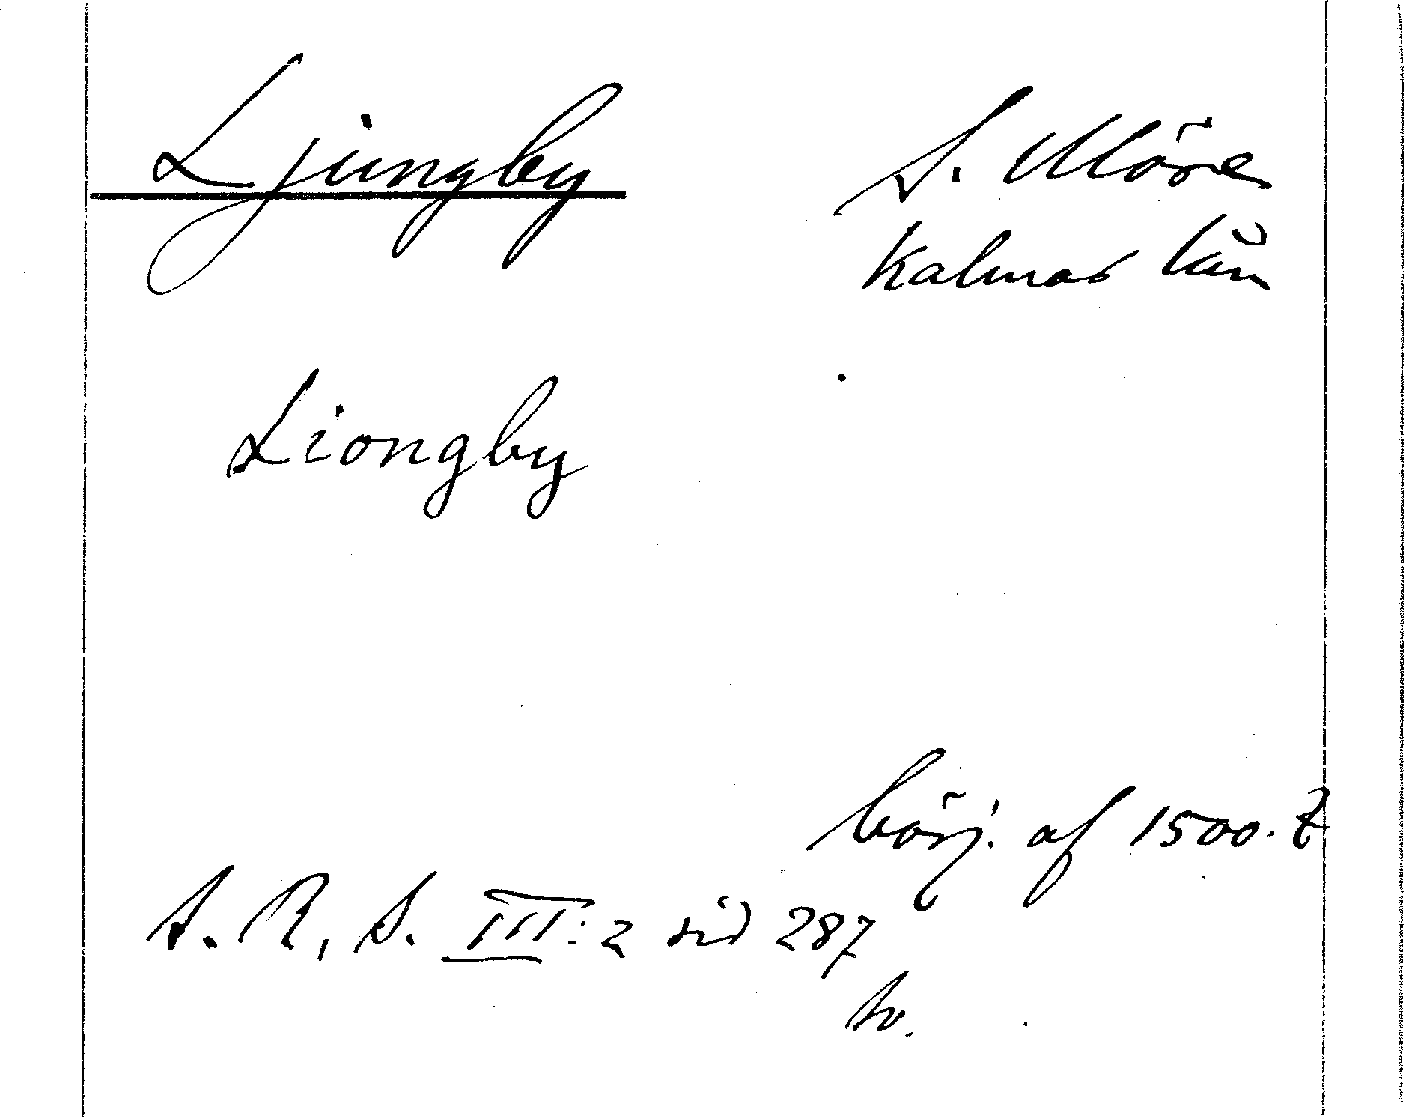 Ljungby
S. Möre
Kalmar län
Liongby
börj. af 1500. t
S. R. S. III: 2 sid 287
sv.